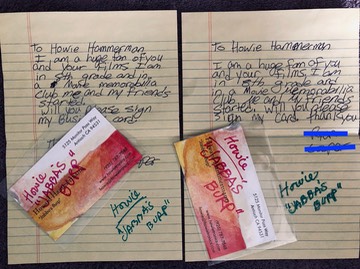 To Howie Hammerman
I am a huge fan of you
and your films. I am
in 5th grade and in
a Movie memorabilia
club me and my friends
started
will you please sign
my Business card
Howie
"JABBA'S
BURP"
Antioch CA 94531
Howie
"JABBA'S
BURP"
To Howie Hammerman
I am a huge fan of you
and your films I am
in 5th grade and I'm
in a Movie Memorabilia
Club me and my friends
started. will you please
sign my card. thank you
Howie
"JABBAS
BURP"
Antioch CA 94531
Howie
"JABBAS
BURP"